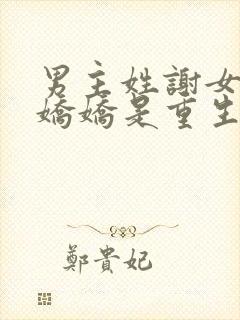 男主姓謝女
嬌嬌是重生
鄭貴妃